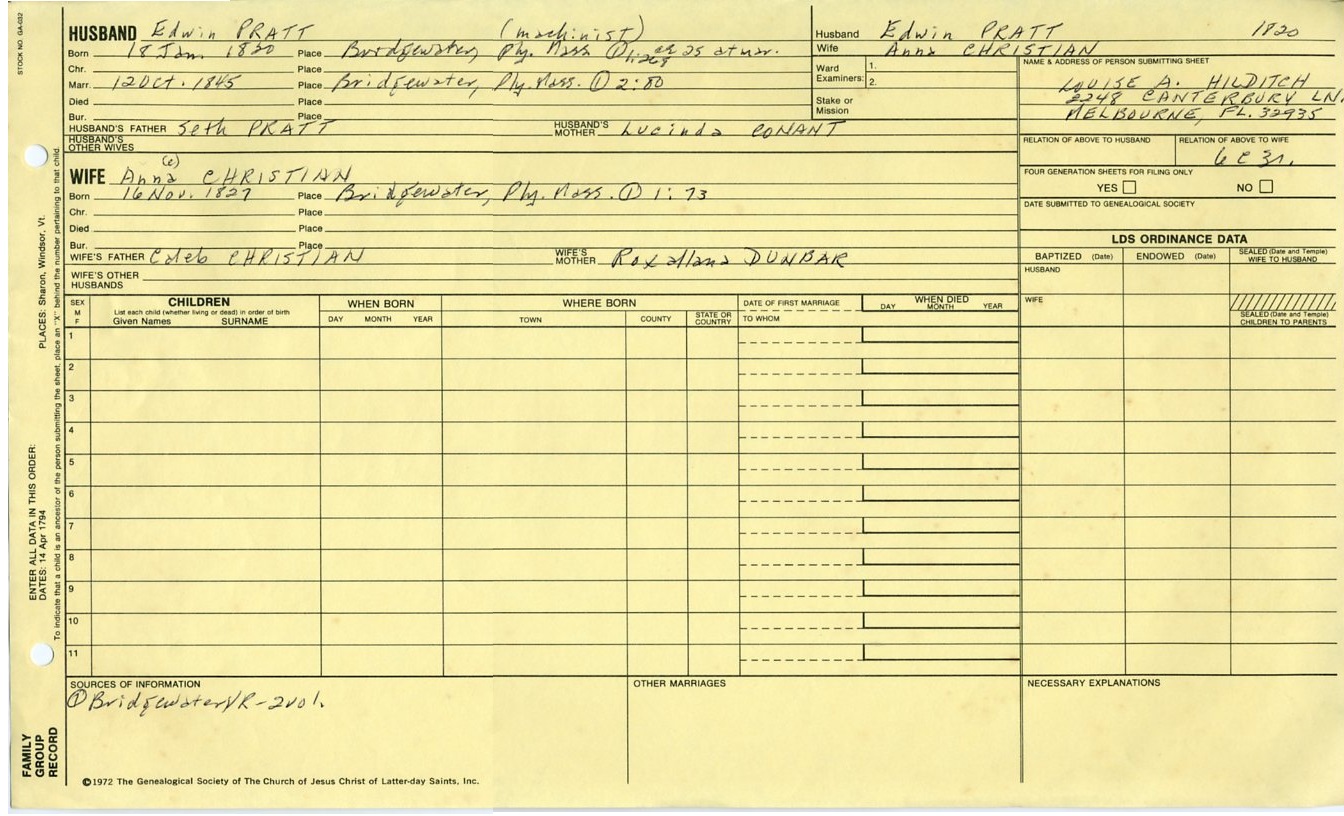 STOCK NO. GA-032
HUSBAND Edwin PRATT (machinist)
Born 18 Jan. 1820 Place Bridgewater, Ply. Mass ① 1:268 ae 25 at mar.
Chr. Place
Marr. 12 Oct. 1845 Place Bridgewater, Ply. Mass. ① 2:80
Died Place
Bur. Place
HUSBAND'S FATHER Seth PRATT HUSBAND'S MOTHER Lucinda CONANT
HUSBAND'S OTHER WIVES
(e)
WIFE Anna CHRISTIAN
Born 16 Nov. 1827 Place Bridgewater, Ply. Mass. ① 1:73
Chr. Place
Died Place
Bur. Place
WIFE'S FATHER Caleb CHRISTIAN WIFE'S MOTHER Roxallana DUNBAR
WIFE'S OTHER HUSBANDS
Husband Edwin PRATT 1820
Wife Anna CHRISTIAN
Ward Examiners: 1. 2.
Stake or Mission
NAME & ADDRESS OF PERSON SUBMITTING SHEET
LOUISE A. HILDITCH
2248 CANTERBURY LN.
MELBOURNE, FL. 32935
RELATION OF ABOVE TO HUSBAND RELATION OF ABOVE TO WIFE
6 C 3r.
FOUR GENERATION SHEETS FOR FILING ONLY
YES NO
DATE SUBMITTED TO GENEALOGICAL SOCIETY
LDS ORDINANCE DATA
BAPTIZED (Date) ENDOWED (Date) SEALED (Date and Temple) WIFE TO HUSBAND
HUSBAND
WIFE
SEALED (Date and Temple) CHILDREN TO PARENTS
SEX M F
CHILDREN
List each child (whether living or dead) in order of birth
Given Names SURNAME
WHEN BORN
DAY MONTH YEAR
WHERE BORN
TOWN COUNTY STATE OR COUNTRY
DATE OF FIRST MARRIAGE
TO WHOM
WHEN DIED
DAY MONTH YEAR
1
2
3
4
5
6
7
8
9
10
11
SOURCES OF INFORMATION
① Bridgewater VR-2vol.
OTHER MARRIAGES
NECESSARY EXPLANATIONS
©1972 The Genealogical Society of The Church of Jesus Christ of Latter-day Saints, Inc.
FAMILY GROUP RECORD
ENTER ALL DATA IN THIS ORDER:
DATES: 14 Apr 1794
PLACES: Sharon, Windsor, Vt.
To indicate that a child is an ancestor of the person submitting the sheet, place an "X" behind the number pertaining to that child.